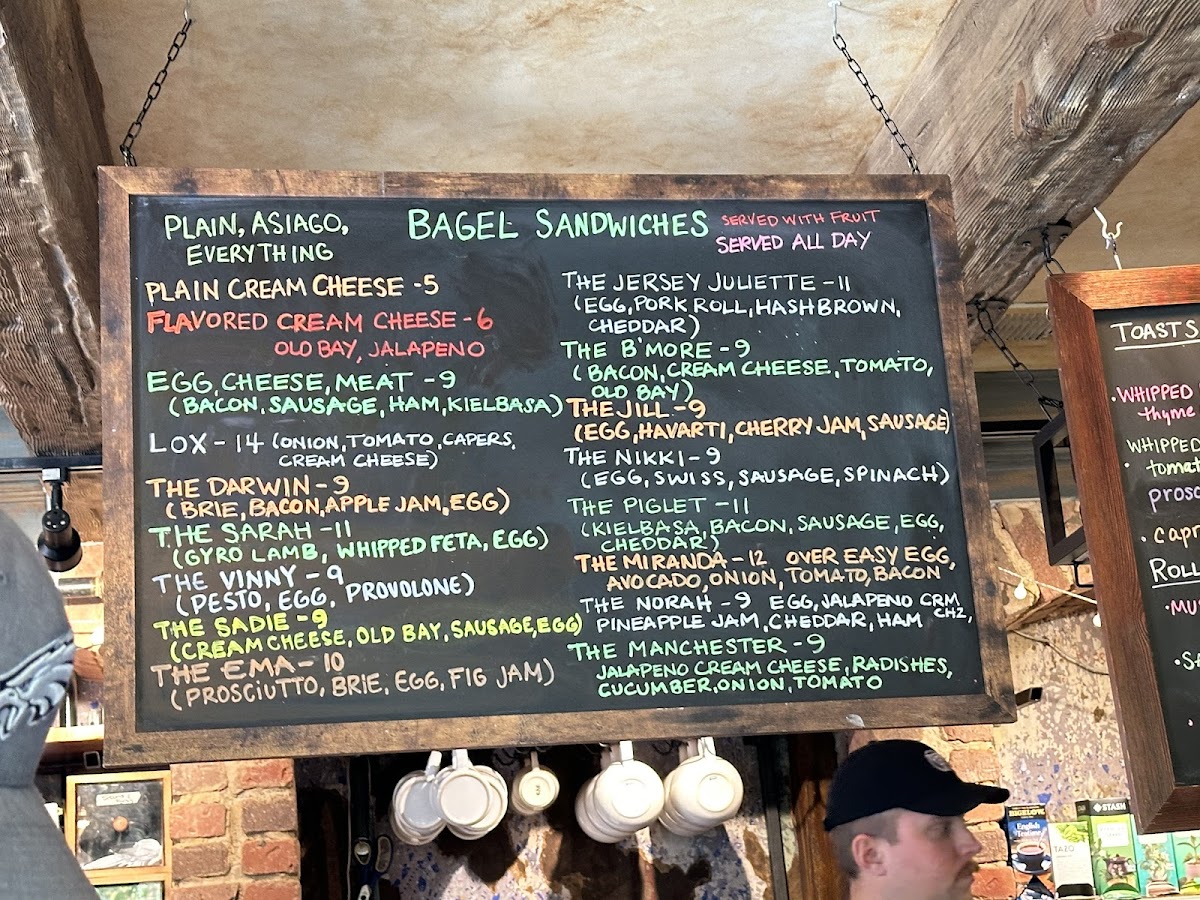 PLAIN, ASIAGO,
EVERYTHING
BAGEL SANDWICHES
SERVED WITH FRUIT
SERVED ALL DAY
PLAIN CREAM CHEESE - 5
FLAVORED CREAM CHEESE - 6
OLD BAY, JALAPENO
EGG, CHEESE, MEAT - 9
(BACON, SAUSAGE, HAM, KIELBASA)
LOX - 14 (ONION, TOMATO, CAPERS,
CREAM CHEESE)
THE DARWIN - 9
(BRIE, BACON, APPLE JAM, EGG)
THE SARAH - 11
(GYRO LAMB, WHIPPED FETA, EGG)
THE VINNY - 9
(PESTO, EGG, PROVOLONE)
THE SADIE - 9
(CREAM CHEESE, OLD BAY, SAUSAGE, EGG)
THE EMA - 10
(PROSCIUTTO, BRIE, EGG, FIG JAM)
THE JERSEY JULIETTE - 11
(EGG, PORK ROLL, HASHBROWN,
CHEDDAR)
THE B'MORE - 9
(BACON, CREAM CHEESE, TOMATO,
OLD BAY)
THE JILL - 9
(EGG, HAVARTI, CHERRY JAM, SAUSAGE)
THE NIKKI - 9
(EGG, SWISS, SAUSAGE, SPINACH)
THE PIGLET - 11
(KIELBASA, BACON, SAUSAGE, EGG,
CHEDDAR)
THE MIRANDA - 12 OVER EASY EGG,
AVOCADO, ONION, TOMATO, BACON
THE NORAH - 9 EGG, JALAPENO CRM
CHZ,
PINEAPPLE JAM, CHEDDAR, HAM
THE MANCHESTER - 9
JALAPENO CREAM CHEESE, RADISHES,
CUCUMBER, ONION, TOMATO
TOASTS
WHIPPED
thyme
WHIPPED
BIGELOW
English
Teatime
TAZO
STASH